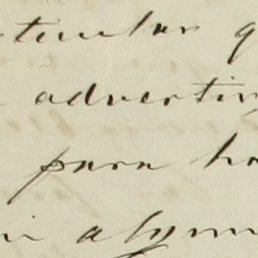 ticular q
advertin
para ha
algum